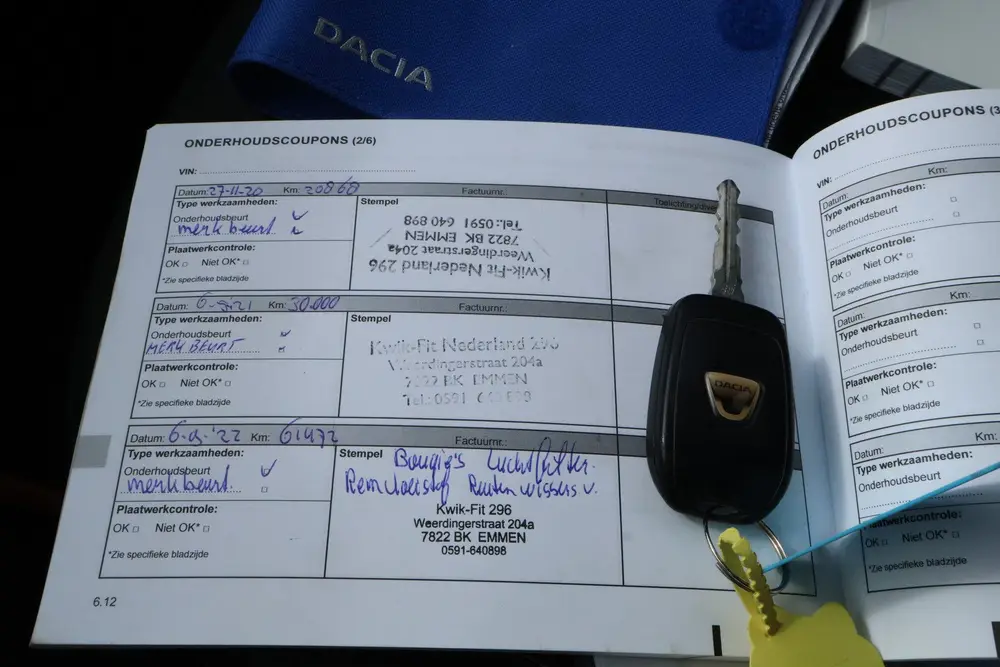 DACIA
ONDERHOUDSCOUPONS (2/6)
VIN:
Datum: 27-11-20 Km: 20868 Factuurnr.
Type werkzaamheden:
Onderhoudsbeurt
merkbeurt
Plaatwerkcontrole:
OK Niet OK*
*Zie specifieke bladzijde
Stempel
Kwik-Fit Nederland 296
Weerdingerstraat 204a
7822 BK EMMEN
Tel.: 0591 640 898
Datum: Km: 30.000 Factuurnr.:
Type werkzaamheden:
Onderhoudsbeurt
MERKBEURT
Plaatwerkcontrole:
OK Niet OK*
*Zie specifieke bladzijde
Stempel
Kwik-Fit Nederland 296
Weerdingerstraat 204a
7822 BK EMMEN
Tel.: 0591 640 898
Datum: Km: 61472 Factuurnr.:
Type werkzaamheden:
Onderhoudsbeurt
merkbeurt
Plaatwerkcontrole:
OK Niet OK*
*Zie specifieke bladzijde
Stempel Bougie's Luchtfilter.
Remvloeistof Ruitenwissers v.
Kwik-Fit 296
Weerdingerstraat 204a
7822 BK EMMEN
0591-640898
6.12
DACIA
ONDERHOUDSCOUPONS (3
VIN:
Datum: Km:
Type werkzaamheden:
Onderhoudsbeurt
Plaatwerkcontrole:
OK Niet OK*
*Zie specifieke bladzijde
Datum: Km:
Type werkzaamheden:
Onderhoudsbeurt
Plaatwerkcontrole:
OK Niet OK*
*Zie specifieke bladzijde
Datum: Km:
Type werkzaamheden:
Onderhoudsbeurt
Plaatwerkcontrole:
OK Niet OK*
*Zie specifieke bladzijde